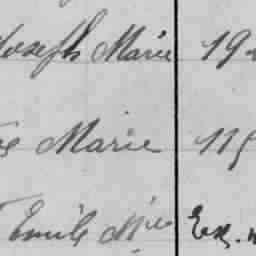 Joseph Marie 19
Marie 115
Emile Mie Ex.